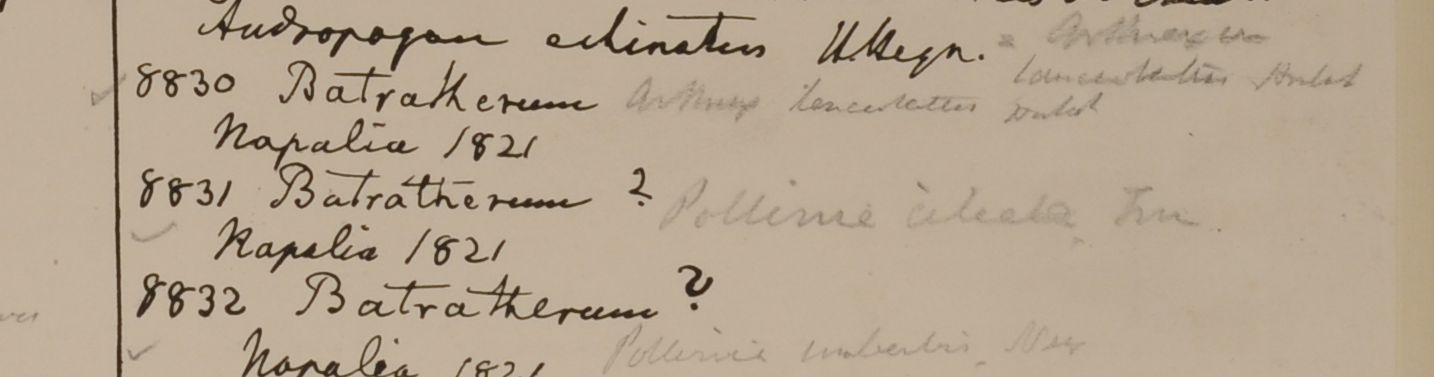 Andropogon echinatus H. Heyn. = Arthraxon
lanceolatus Hochst
8830 Batratherum Arthrax lanceolatus Hochst
Napalia 1821
8831 Batratherum ? Pollinia ciliata Trin
Napalia 1821
8832 Batratherum ?
Napalia 1821 Pollinia imberbis Nees